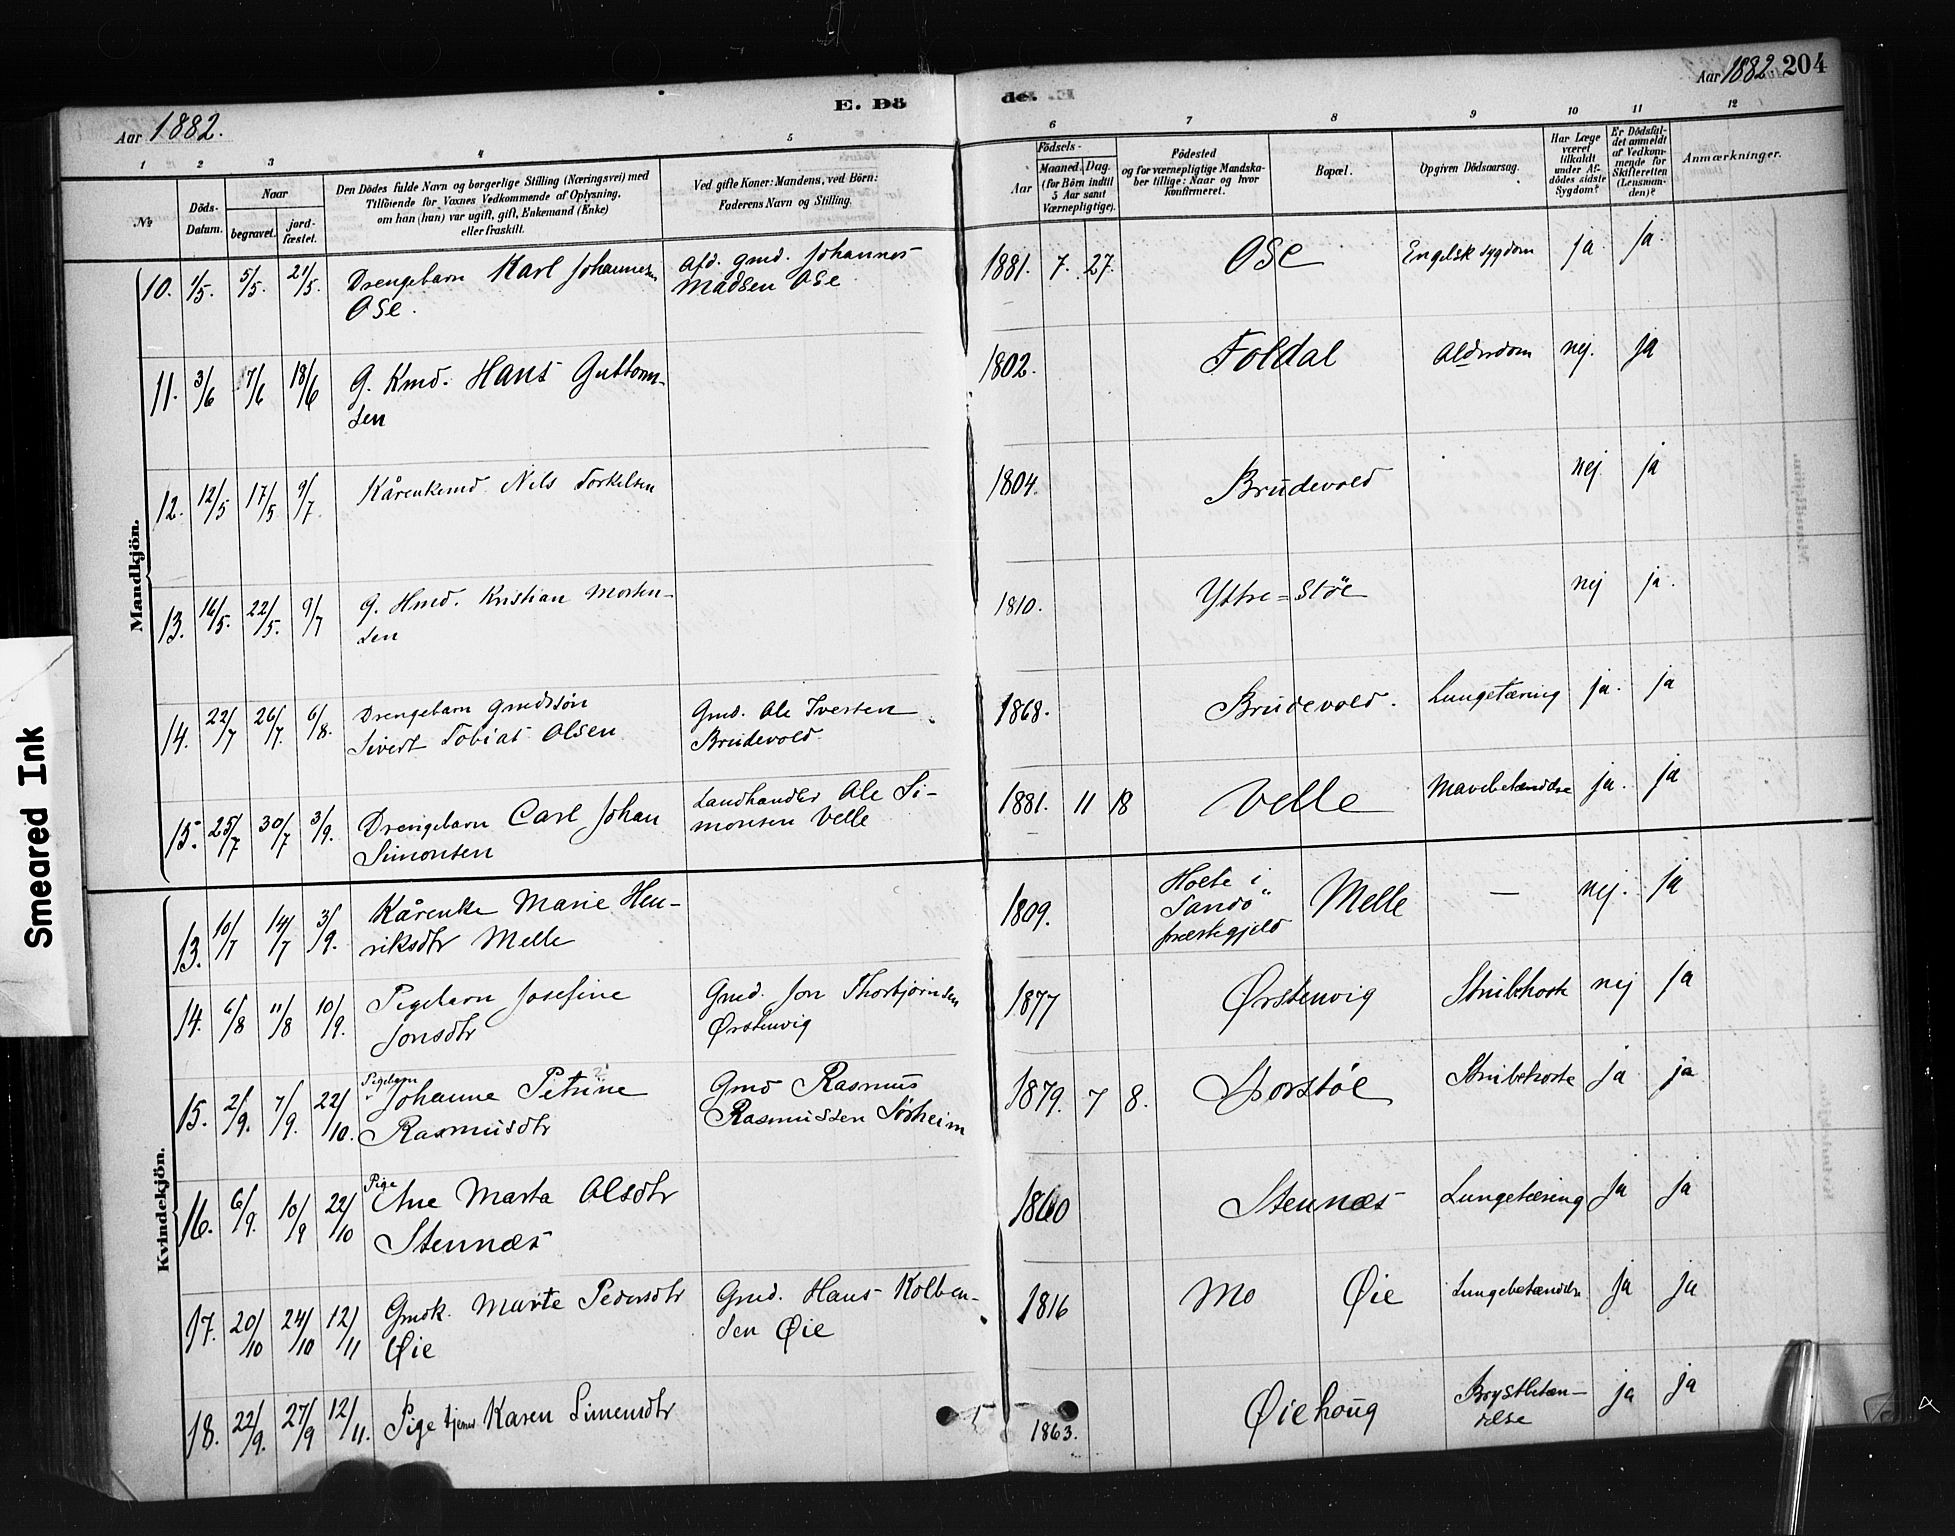 Aar 1882.
E. Dö
de. E.
Aar 1882 204
1 2 3 4 5 6 7 8 9 10 11 12
No.
Döds-
Datum.
Naar
begravet.
jord-
fæstet.
Den Dödes fulde Navn og borgerlige Stilling (Næringsvei) med
Tilföiende for Voxnes Vedkommende af Oplysning,
om han (hun) var ugift, gift, Enkemand (Enke)
eller fraskilt.
Ved gifte Koner: Mandens, ved Börn:
Faderens Navn og Stilling.
Födsels-
Aar
Maaned. Dag.
(for Börn indtil
5 Aar samt
Værnepligtige).
Födested
og for værnepligtige Mandska-
ber tillige: Naar og hvor
konfirmeret.
Bopæl.
Opgiven Dödsaarsag.
Har Læge
været
tilkaldt
under Af-
dödes sidste
Sygdom?
Er Dödsfal-
det anmeldt
af Vedkom-
mende for
Skifteretten
(Lensman-
den)?
Anmærkninger.
Mandkjön.
10. 1/5. 5/5. 21/5. Drengebarn Karl Johannesen
Ose.
Afd. gmd. Johannes
Madsen Ose
1881. 7. 27. Ose Engelsk sygdom ja. ja.
11. 3/6 7/6 18/6 G. Kmd. Hans Guttorm-
sen
1802. Foldal Alderdom nej. ja
12. 12/5 17/5 9/7. Kårenkemd. Nils Torkelsen
1804. Brudevold nej. ja
13. 16/5. 22/5. 9/7 G. Hmd. Kristian Morten-
sen
1810. Yttre=Støe nej ja.
14. 22/7 26/7. 6/8. Drengebarn gmdssøn
Sivert Tobias Olsen
Gmd. Ole Iversen
Brudevold.
1868. Brudevold. Lungetæring ja. ja
15. 25/7 30/7 3/9. Drengebarn Carl Johan
Simonsen
Landhandler Ole Si-
monsen Velle
1881. 11 18 Velle Mavebetændelse ja. ja
Kvindekjön.
13. 10/7 14/7 3/9. Kårenke Marie Hen-
riksdtr Melle
1809. Holte i
Sandø
præstegjeld
Melle — nej. ja
14. 6/8 11/8 10/9. Pigebarn Josefine
Jonsdtr
Gmd. Jon Thorbjørnsen
Ørstenvig
1877 Ørstenvig Strubehoste nej ja
15. 2/9. 7/9. 22/10. Pigebarn
Johanne Petrine
Rasmusdtr
Gmd Rasmus
Rasmussen Sørheim
1879. 7 8. Norstøe Strubehoste ja ja
16. 6/9. 10/9 22/10 Pige
Ane Marta Olsdtr
Stennæs
1860 Stennæs Lungetæring ja ja
17. 20/10 24/10 12/11 Gmdk. Marte Pedersdtr
Øie
Gmd. Hans Kolben-
sen Øie
1816 Mo Øie Lungebetændelse ja ja
18. 22/9. 27/9 12/11. Pige tjener Karen Simensdtr
1863. Øiehoug Brystbetæn-
delse
ja ja
Smeared Ink